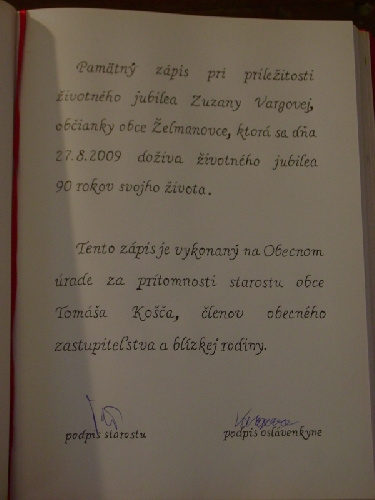 Pamätný zápis pri príležitosti
životného jubilea Zuzany Vargovej,
občianky obce Želmanovce, ktorá sa dňa
27.8.2009 dožíva životného jubilea
90 rokov svojho života.
Tento zápis je vykonaný na Obecnom
úrade za prítomnosti starostu obce
Tomáša Košča, členov obecného
zastupiteľstva a blízkej rodiny.
podpis starostu
podpis oslávenkyne